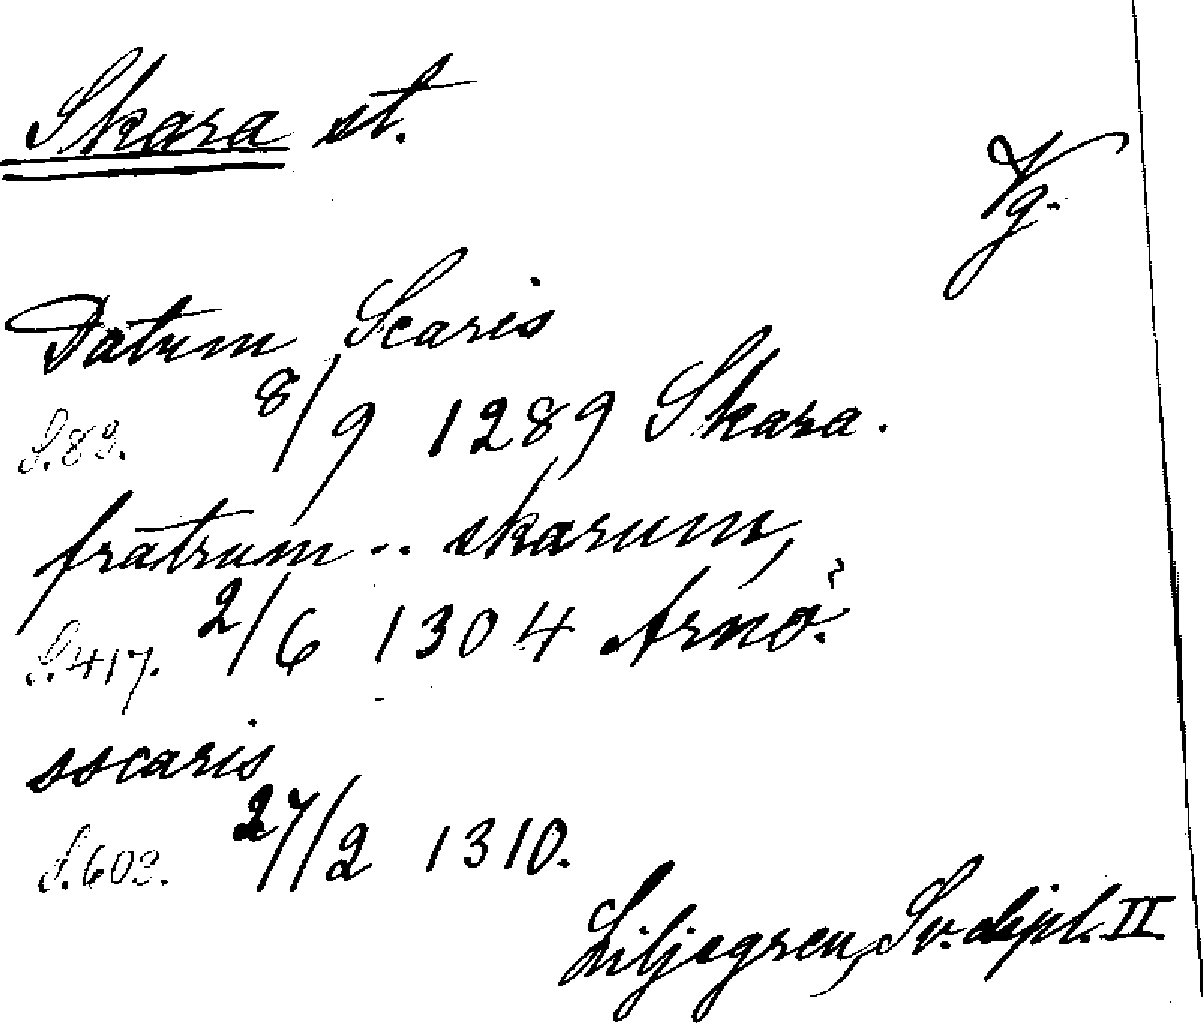 Skara st.
Vg.
Datum Scaris
S. 89. 8/9 1289 Skara.
fratrum .. skarum,
S. 417. 2/6 1304 Arnö.
sscaris
S. 602. 27/2 1310.
Liljegren, Sv. dipl. II.